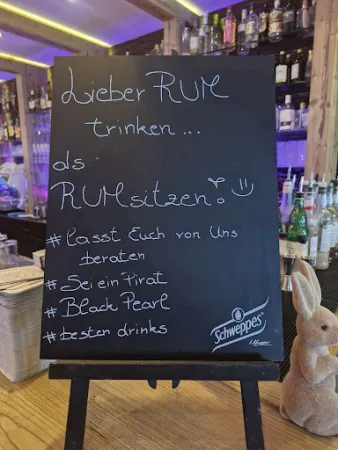 Lieber RUM
trinken...
als
RUMsitzen!
# lasst Euch von Uns
beraten
# Sei ein Pirat
# Black Pearl
# besten drinks
Schweppes